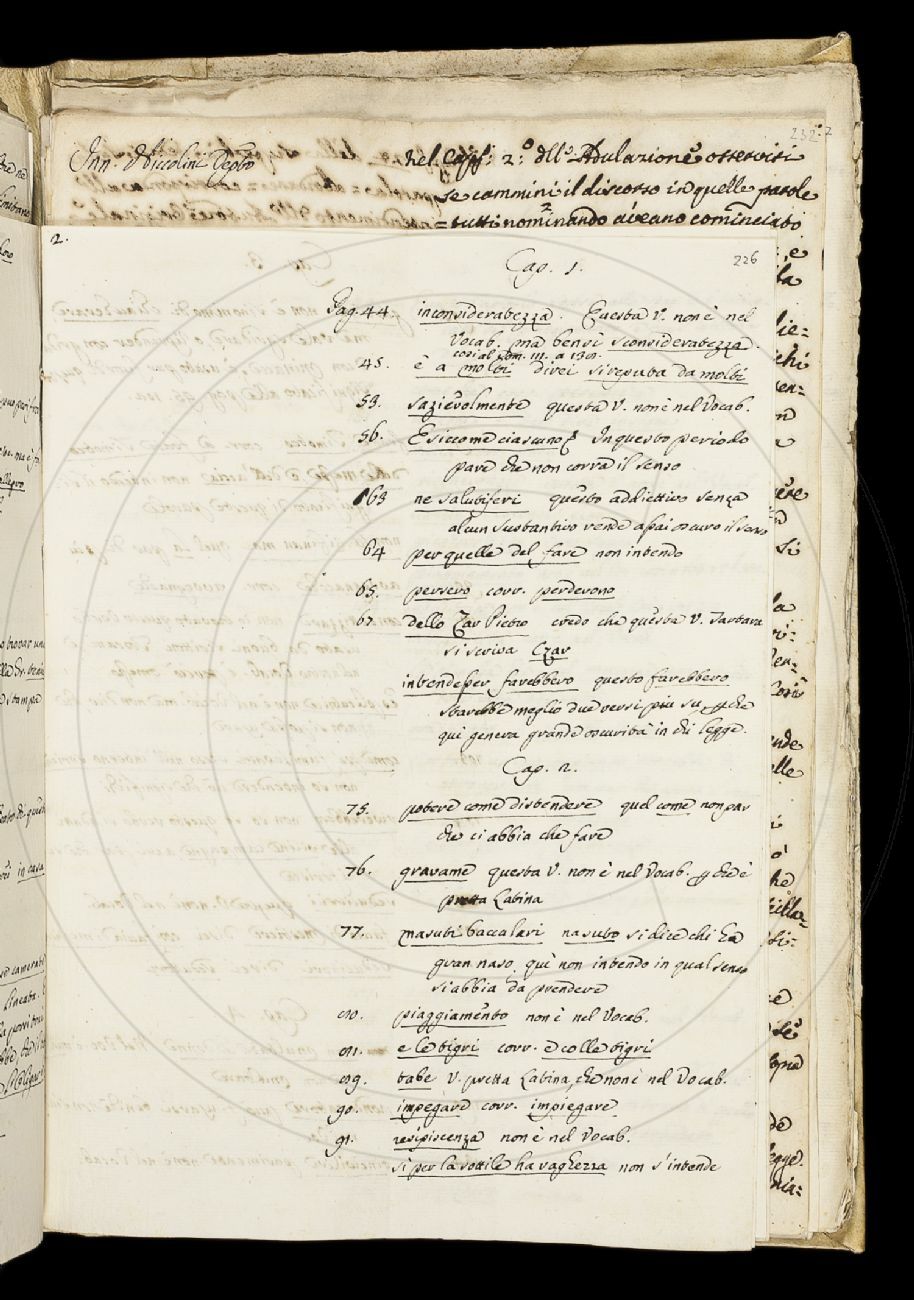 232.2
Inn. Niccolini
nel Capp: 2.º dll'o Adulazione osservisi
se cammini il discorso in quelle parole
= tutti nominando aveano cominciato
2.
226
Cap. 1.
Pag. 44. inconsiderabezza. Questa V. non è nel
Vocab. ma bensì sconsiderabezza.
45. è a molti direi si reputa da molti
53. sazievolmente questa V. non è nel Vocab.
56. E siccome ciascuno In questo periodo
pare che non corra il senso
163 ne salutiferi questo addiettivo senza
alcun sustantivo rende assai oscuro il senso
64 per quelle del fare non intendo
65. persero corr. perderono
67. dello Zar Pietro credo che questa V. Tartara
si scriva Czar
intender farebbero questo farebbero
starebbe meglio due versi più su, che
qui genera grande oscurità in chi legge.
Cap. 2.
75. potere come distendere quel come non par
che ci abbia che fare
76. gravame questa V. non è nel Vocab. è
pretta Latina
77. nasuti baccalari nasuto si dice chi ha
gran naso, quì non intendo in qual senso
si abbia da prendere
piaggiamento non è nel Vocab.
e le tigri corr. e colle tigri
tabe V. pretta Latina, che non è nel Vocab.
90. impegare corr. impiegare
91. resipiscenza non è nel Vocab.
si per la sottile ha vaghezza non s'intende